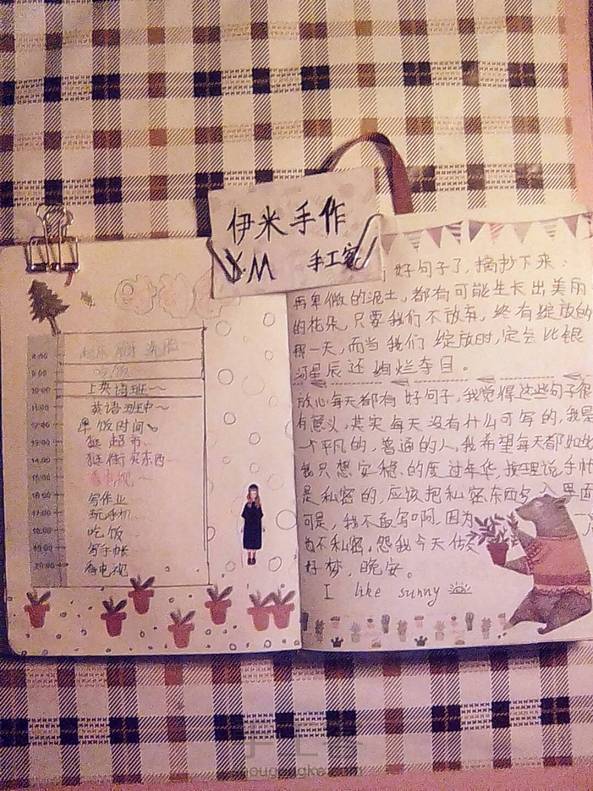 伊米手作
YM 手工客
8:00
9:00
10:00 上英语班~
11:00 英语班中~
12:00 午饭时间
13:00 逛超市
14:00 逛街买东西
15:00 看电视
16:00 写作业
17:00 玩手机
18:00 吃饭
19:00 写手帐
20:00 看电视
好句子了，摘抄下来：
再卑微的泥土，都有可能生长出美丽
的花朵，只要我们不放弃，终有绽放的
那一天，而当我们绽放时，定会比银
河星辰还绚烂夺目。
放心每天都有好句子，我觉得这些句子很
有意义，其实每天没有什么可写的，我是
一个平凡的，普通的人，我希望每天都如此
我只想安稳的度过年华，按理说手帐
是私密的，应该把私密东西写入里面
可是，我不敢写啊，因为
为不私密，怨我今天
好梦，晚安。
I like sunny
手工客